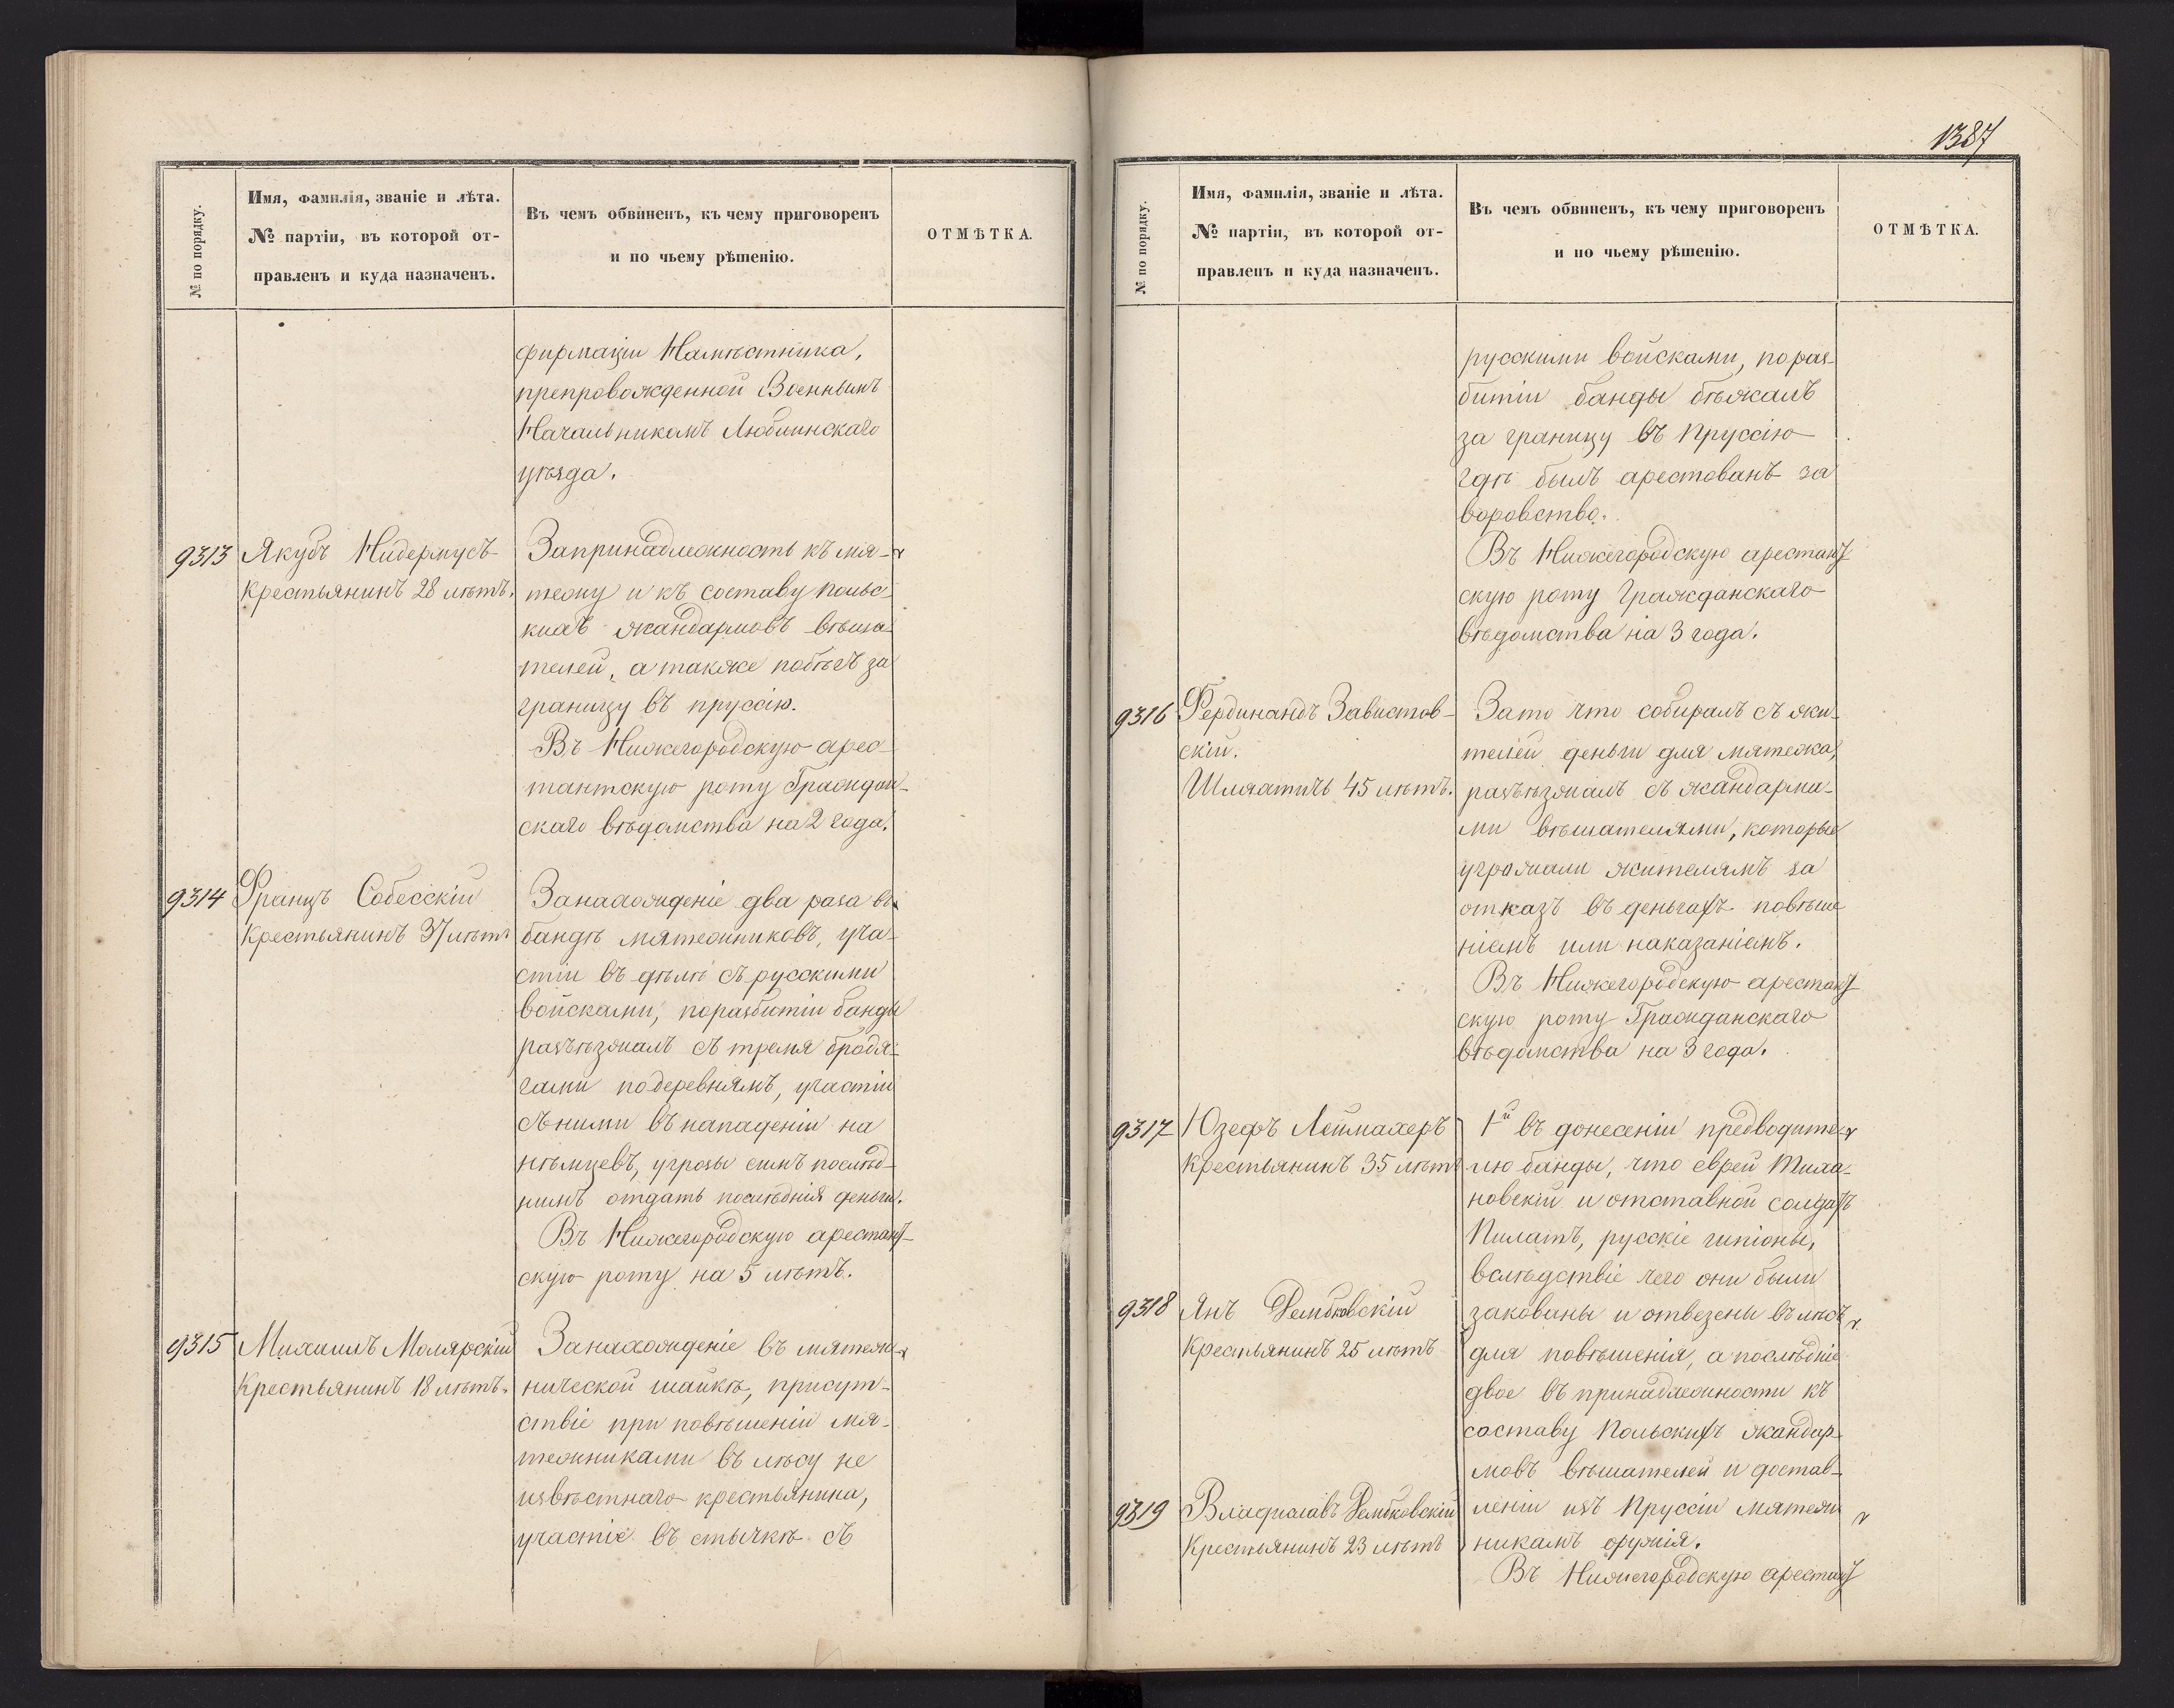 № по порядку.
Имя, фамилія, званіе и лѣта.
№ партіи, въ которой от-
правленъ и куда назначенъ.
Въ чемъ обвиненъ, къ чему приговоренъ
и по чьему рѣшенію.
ОТМѢТКА.
фирмаціи Намѣстника,
препровожденной Военнымъ
Начальникомъ Люблинскаго
уѣзда.
9313
Якубъ Нидермусъ
Крестьянинъ 28 лѣтъ.
За принадлежность къ мя-
тежу и къ составу польс-
кихъ жандармовъ вѣша-
телей, а также побѣгъ за
границу въ пруссію.
Въ Нижегородскую арес-
тантскую роту Граждан-
скаго вѣдомства на 2 года.
9314
Францъ Собесскій
Крестьянинъ 37 лѣтъ
За нахожденіе два раза въ
бандѣ мятежниковъ, уча-
стіи въ дѣлѣ съ русскими
войсками, по разбитіи банды
разъѣзжалъ съ тремя бродя-
гами по деревнямъ, участіи
съ ними въ нападеніи на
нѣмцевъ, угрозы симъ послѣд-
нимъ отдать послѣднія деньги.
Въ Нижегородскую арестант-
скую роту на 5 лѣтъ.
9315
Михаилъ Молярскій
Крестьянинъ 18 лѣтъ.
За нахожденіе въ мятеж-
нической шайкѣ, присут-
ствіе при повѣшеніи мя-
тежниками въ лѣсу не
извѣстнаго крестьянина,
участіе въ стычкѣ съ
1387
№ по порядку.
Имя, фамилія, званіе и лѣта.
№ партіи, въ которой от-
правленъ и куда назначенъ.
Въ чемъ обвиненъ, къ чему приговоренъ
и по чьему рѣшенію.
ОТМѢТКА.
русскими войсками, по раз-
битіи банды бѣжалъ
за границу въ Пруссію
гдѣ былъ арестованъ за
воровство.
Въ Нижегородскую арестант
скую роту Гражданскаго
вѣдомства на 3 года.
9316
Фердинандъ Завистов-
скій.
Шляхтичъ 45 лѣтъ.
За то что собиралъ съ жи-
телей деньги для мятежа,
разъѣзжалъ съ жандарма-
ми вѣшателями, которые
угрожали жителямъ за
отказъ въ деньгахъ повѣше
ніемъ или наказаніемъ.
Въ Нижегородскую арестант
скую роту Гражданскаго
вѣдомства на 3 года.
9317
Юзефъ Леймахеръ
Крестьянинъ 35 лѣтъ
1й въ донесеніи предводите-
лю банды, что еврей Тиха-
новскій и отставной солдатъ
Пилатъ, русскіе шпіоны,
вслѣдствіе чего они были
9318
Янъ Рембковскій
Крестьянинъ 25 лѣтъ
закованы и отвезены въ лѣсъ
для повѣшенія, а послѣдніе
двое въ принадлежности къ
составу Польскихъ жандар-
мовъ вѣшателей и достав-
9319
Владиславъ Рембковскій
Крестьянинъ 23 лѣтъ
леніи изъ Пруссіи мятеж
никамъ оружія.
Въ Нижегородскую арестант